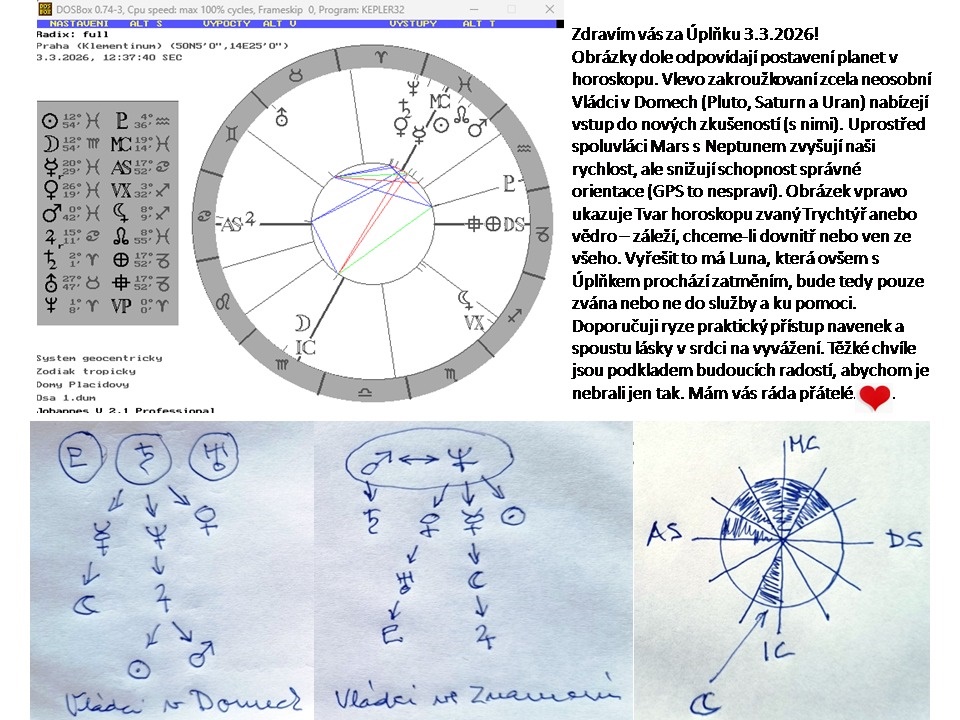 DOSBox 0.74-3, Cpu speed: max 100% cycles, Frameskip 0, Program: KEPLER32
NASTAVENI ALT S VYPOCTY ALT V VYSTUPY ALT T
Radix: full
Praha (Klementinum) (50N5'0",14E25'0")
3.3.2026, 12:37:40 SEC
☉ 12° 54' ♓ ♇ 4° 36' ♒
☽ 12° 54' ♍ MC 19° 14' ♓
☿r 20° 29' ♓ AS 17° 52' ♋
♀ 26° 19' ♓ VX 3° 32' ♐
♂ 0° 42' ♓ ⚸ 8° 9' ♐
♃r 15° 11' ♋ ☊ 8° 55' ♓
♄ 2° 1' ♈ ⊕ 17° 52' ♑
♅ 27° 47' ♉ 17° 52' ♑
♆ 1° 8' ♈ VP 0° 0' ♈
MC
♇
AS ♃
DS
VX
IC
System geocentricky
Zodiak tropicky
Domy Placidovy
Osa 1.dum
Johannes V 2.1 Professional
Zdravím vás za Úplňku 3.3.2026!
Obrázky dole odpovídají postavení planet v
horoskopu. Vlevo zakroužkovaní zcela neosobní
Vládci v Domech (Pluto, Saturn a Uran) nabízejí
vstup do nových zkušeností (s nimi). Uprostřed
spoluvláci Mars s Neptunem zvyšují naši
rychlost, ale snižují schopnost správné
orientace (GPS to nespraví). Obrázek vpravo
ukazuje Tvar horoskopu zvaný Trychtýř anebo
vědro – záleží, chceme-li dovnitř nebo ven ze
všeho. Vyřešit to má Luna, která ovšem s
Úplňkem prochází zatměním, bude tedy pouze
zvána nebo ne do služby a ku pomoci.
Doporučuji ryze praktický přístup navenek a
spoustu lásky v srdci na vyvážení. Těžké chvíle
jsou podkladem budoucích radostí, abychom je
nebrali jen tak. Mám vás ráda přátelé ❤.
♇ ♄ ♅
☿ ♆ ♀
☾ ♃
☉ ♂
Vládci v Domech
♂ ↔ ♆
♄ ♀ ☿ ☉
♅ ☾
♇ ♃
Vládci ve Znamení
MC
AS
DS
IC
☾